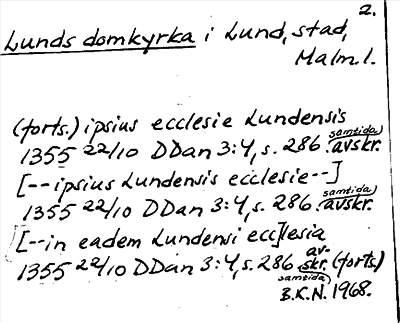 2.
Lunds domkyrka i Lund, stad,
Malm.l.
(forts.) ipsius ecclesie Lundensis
1355 22/10 DDan 3:4, s. 286. samtida avskr.
[--ipsius Lundensis ecclesie--]
1355 22/10 DDan 3:4, s. 286. samtida avskr.
[--in eadem Lundensi ecc]lesia
1355 22/10 DDan 3:4, s. 286 samtida av-
skr. (forts)
B.K.N. 1968.